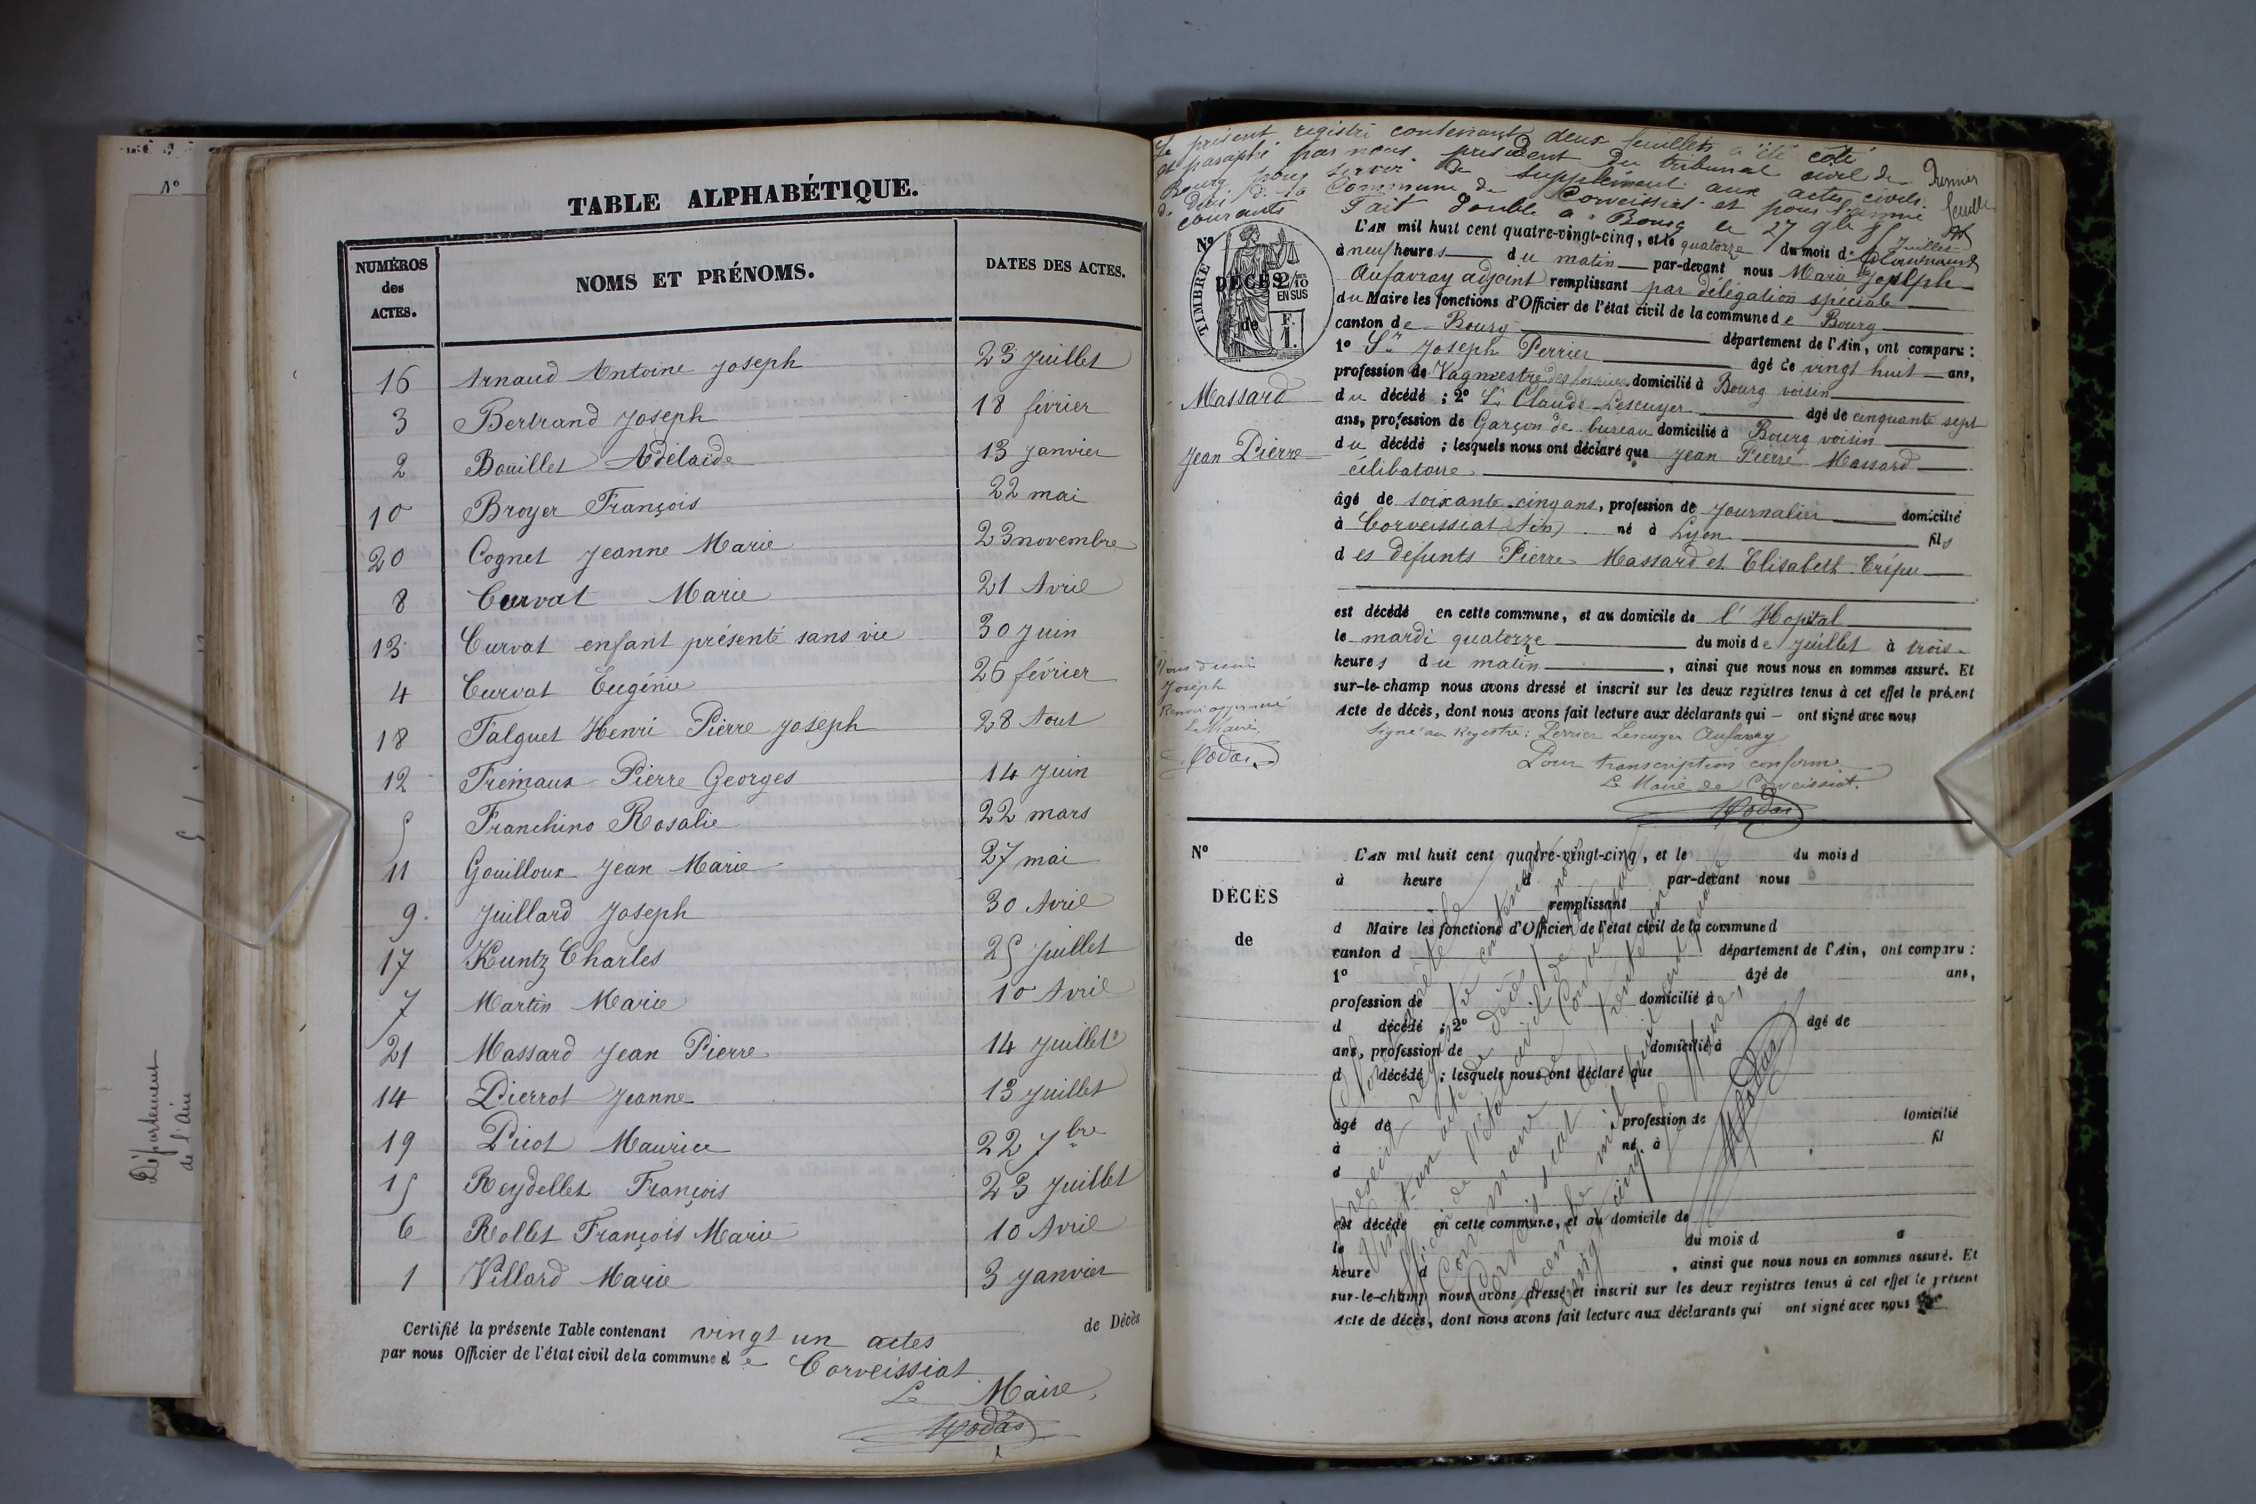 Département
de l'Ain
N°
TABLE ALPHABÉTIQUE.
NUMÉROS des ACTES. NOMS ET PRÉNOMS. DATES DES ACTES.
16 Arnaud Antoine Joseph 23 Juillet
3 Bertrand Joseph 18 février
2 Bouillet Adélaïde 13 Janvier
10 Broyer François 22 mai
20 Cognet Jeanne Marie 23 novembre
8 Curvat Marie 21 Avril
13 Curvat enfant présenté sans vie 30 Juin
4 Curvat Eugénie 26 février
18 Falguet Henri Pierre Joseph 28 Aout
12 Frémaux Pierre Georges 14 Juin
5 Franchino Rosalie 22 mars
11 Gouilloux Jean Marie 27 mai
9. Juillard Joseph 30 Avril
17 Kuntz Charles 25 Juillet
7 Martin Marie 10 Avril
21 Massard Jean Pierre 14 Juillet
14 Pierrot Jeanne 13 Juillet
19 Picot Maurice 22 7bre
15 Reydellet François 23 Juillet
6 Rollet François Marie 10 Avril
1 Villard Marie 3 Janvier
Certifié la présente Table contenant vingt un actes de Décès
par nous Officier de l'état civil de la commune de Corveissiat
Le Maire,
Le présent registre contenant deux feuillets a été côté
et paraphé par nous président du tribunal civil de
Bourg pour servir de supplément aux actes civils
de décès de la Commune de Corveissiat et pour l'année
courante Fait double à Bourg le 27 9bre 85
Premier
feuillet
N°
TIMBRE
DÉCÈS
de
2/10
EN SUS
F.
1.
L'AN mil huit cent quatre-vingt-cinq, et le quatorze du mois de Juillet
à neuf heures du matin par-devant nous Marie Joseph
Aufavray adjoint remplissant par délégation spéciale
du Maire les fonctions d'Officier de l'état civil de la commune de Bourg
canton de Bourg département de l'Ain, ont comparu :
1° Sr Joseph Perrier âgé de vingt huit ans,
profession de Vagmestre des hospices domicilié à Bourg voisin
du décédé ; 2° Sr Claude Lescuyer âgé de cinquante sept
ans, profession de Garçon de bureau domicilié à Bourg voisin
du décédé ; lesquels nous ont déclaré que Jean Pierre Massard
célibataire
Massard
Jean Pierre
âgé de soixante cinq ans, profession de Journalier domicilié
à Corveissiat (Ain) né à Lyon fils
des défunts Pierre Massard et Elisabeth Crépu
est décédé en cette commune, et au domicile de l'Hopital
le mardi quatorze du mois de Juillet à trois
heures du matin, ainsi que nous nous en sommes assuré. Et
sur-le-champ nous avons dressé et inscrit sur les deux registres tenus à cet effet le présent
Acte de décès, dont nous avons fait lecture aux déclarants qui ont signé avec nous
Joseph
Le Maire
Signé au Registre : Perrier Lescuyer Aufavray
Pour transcription conforme
Le Maire de Corveissiat.
N°
DÉCÈS
de
L'AN mil huit cent quatre-vingt-cinq, et le du mois d
à heure d par-devant nous
remplissant
d Maire les fonctions d'Officier de l'état civil de la commune d
canton d département de l'Ain, ont comparu :
1° âgé de ans,
profession de domicilié à
d décédé ; 2° âgé de
ans, profession de domicilié à
d décédé ; lesquels nous ont déclaré que
âgé de profession de domicilié
à né à fil
d
est décédé en cette commune, et au domicile de
le du mois d à
heure d, ainsi que nous nous en sommes assuré. Et
sur-le-champ nous avons dressé et inscrit sur les deux registres tenus à cet effet le présent
Acte de décès, dont nous avons fait lecture aux déclarants qui ont signé avec nous
Clos et arrêté le
présent registre contenant
vingt-un actes de décès par nous
officier de l'Etat civil de la
Commune de
Corveissiat le trente un
décembre mil huit cent quatre
vingt cinq. Le Maire,